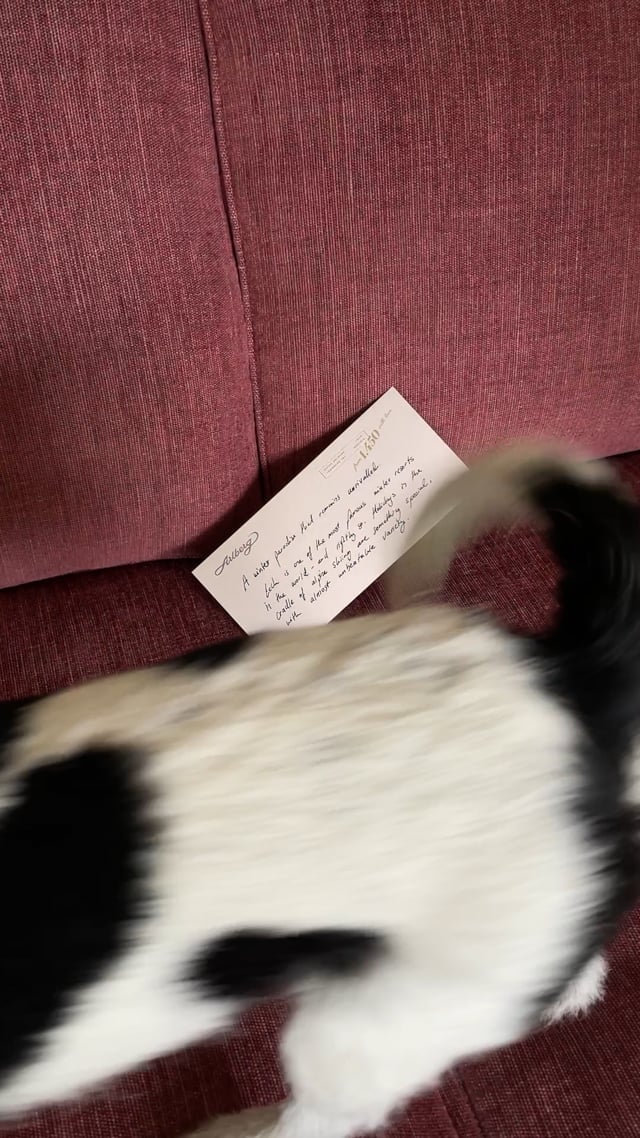 Arlberg
from 1.450 with love
A winter paradise that remains unrivalled
Lech is one of the most famous winter resorts
in the world – and rightly so. Holidays in the
cradle of alpine skiing are something special,
with almost unbeatable variety.